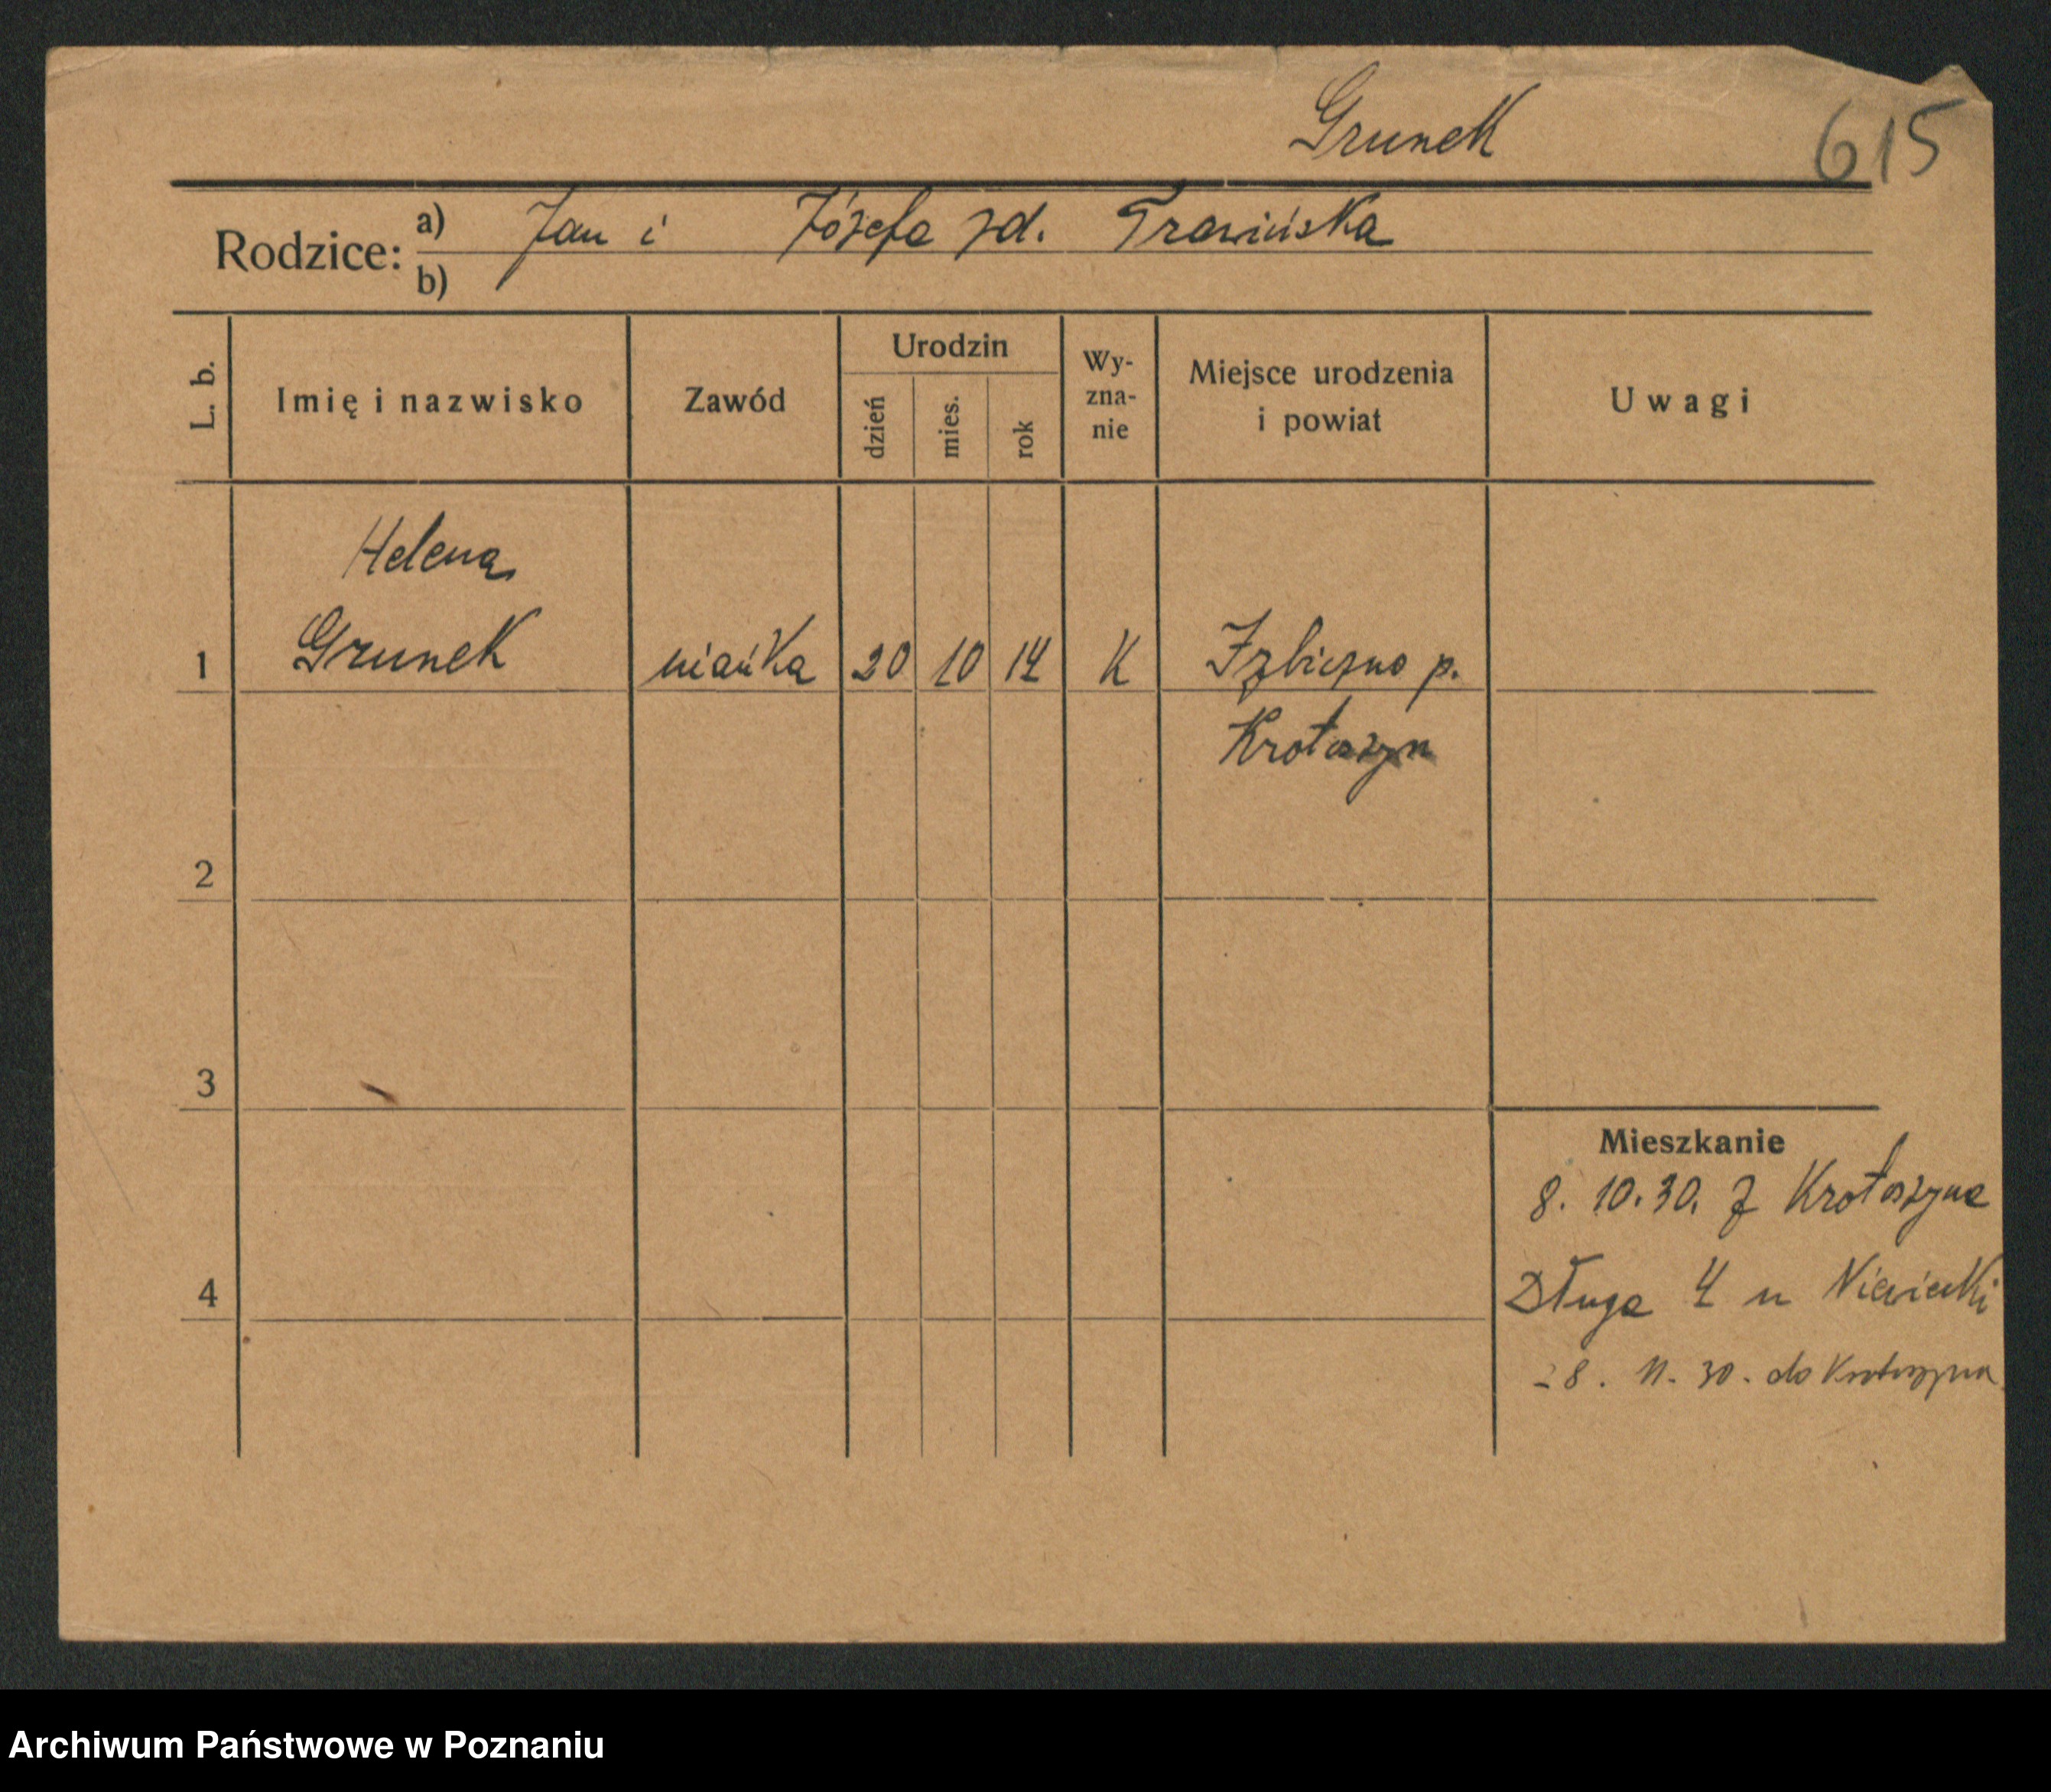 Grunek
615
Rodzice: a) Jan i Józefa zd. Trawińska
b)
L. b.
Imię i nazwisko
Zawód
Urodzin
dzień
mies.
rok
Wy-
zna-
nie
Miejsce urodzenia
i powiat
Uwagi
Helena
1 Grunek niańka 20 10 14 K Izbiczno p.
Krotoszyn
2
3
Mieszkanie
8. 10. 30. z Krotoszyna
4 Długa 4 u
28. 11. 30. do Krotoszyna
Archiwum Państwowe w Poznaniu